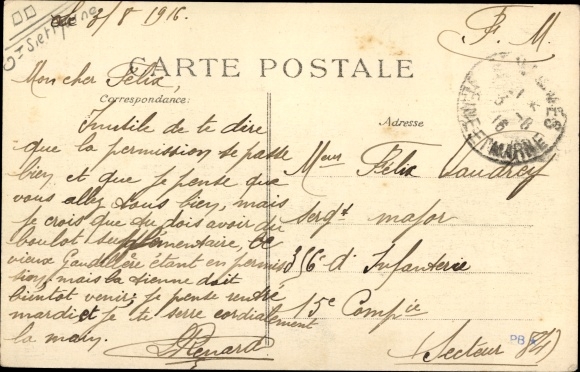 le 3/8 1916.
F. M.
CARTE POSTALE
Correspondance:
Adresse
Mon cher Félix,
Inutile de te dire
que la permission se passe
bien et que je pense que
vous allez tous bien, mais
je crois que tu dois avoir du
boulot supplémentaire, ce
vieux Gaudillère étant en permis
sion, mais la tienne doit
bientôt venir; je pense rentrer
mardi et je te serre cordialement
la main.
Renard
Mons Félix Vaudrey
sergt major
356e d'Infanterie
15e Compie
Secteur 84
SEINE ET MARNE
PB